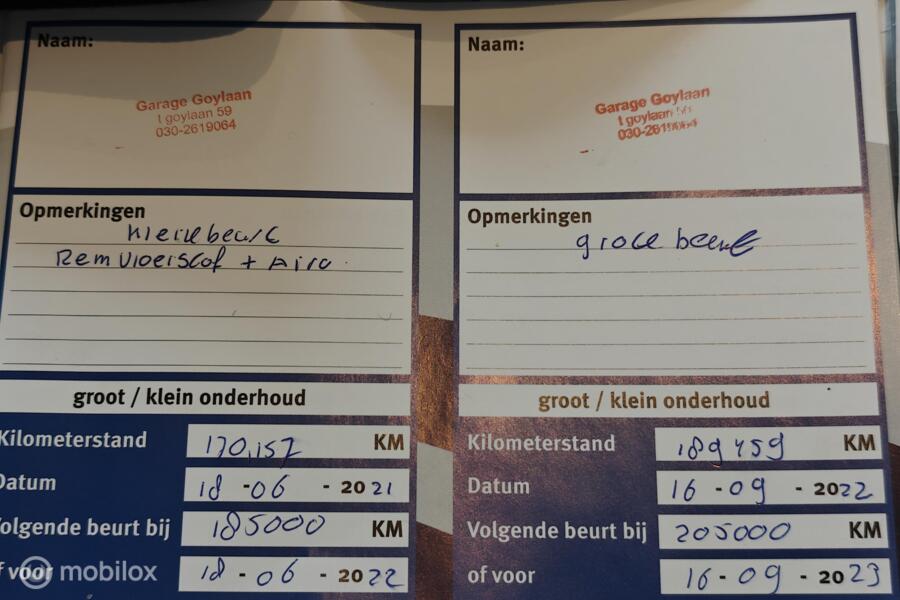 Naam:
Garage Goylaan
t goylaan 59
030-2619064
Opmerkingen
kleine beurt
Remvloeistof + Airo
groot / klein onderhoud
Kilometerstand 170,157 KM
Datum 18 - 06 - 2021
Volgende beurt bij 185000 KM
of voor 18 - 06 - 2022
mobilox
Naam:
Garage Goylaan
t goylaan
030-2619064
Opmerkingen
grote beurt
groot / klein onderhoud
Kilometerstand 189459 KM
Datum 16 - 09 - 2022
Volgende beurt bij 205000 KM
of voor 16 - 09 - 2023